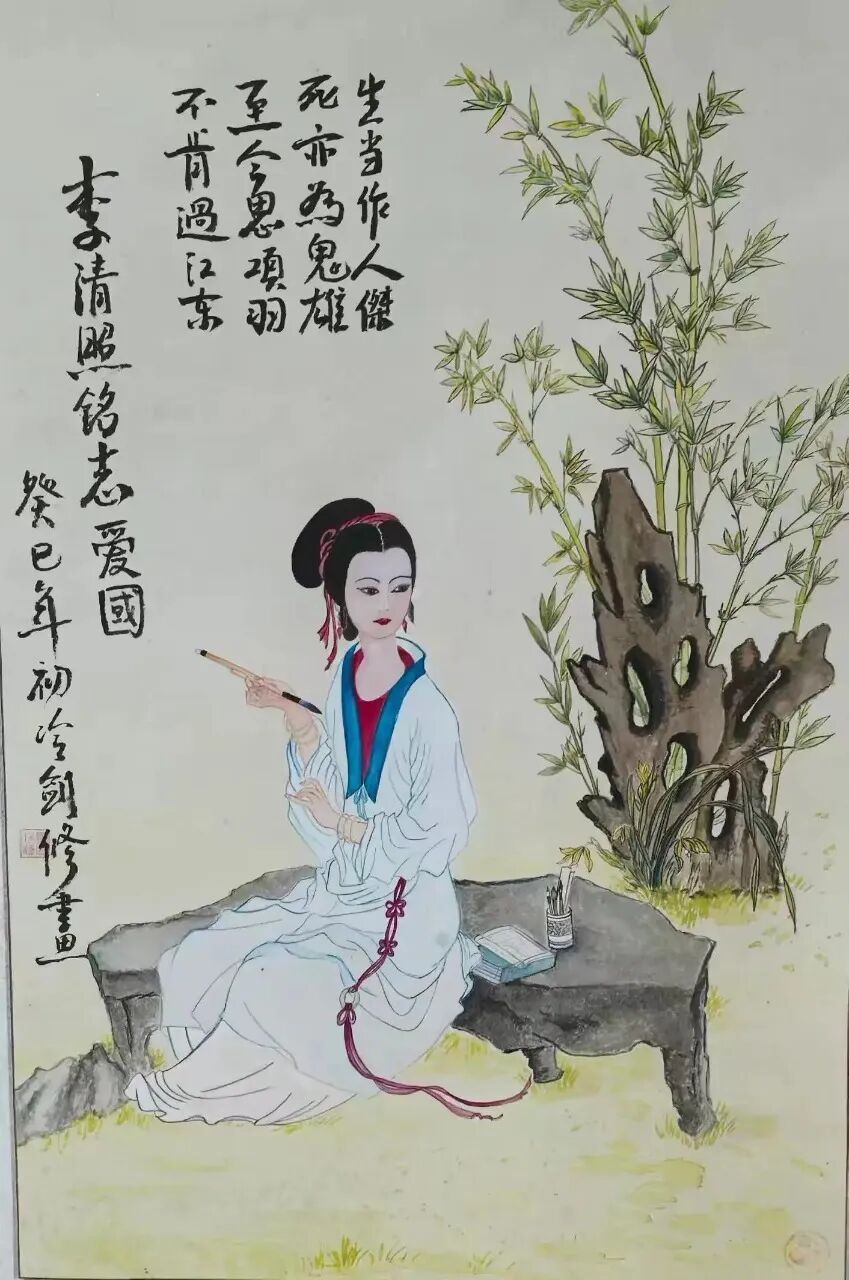 生当作人傑
死亦為鬼雄
至今思項羽
不肯過江东
李清照銘志愛國
癸巳年初冷劍修畫